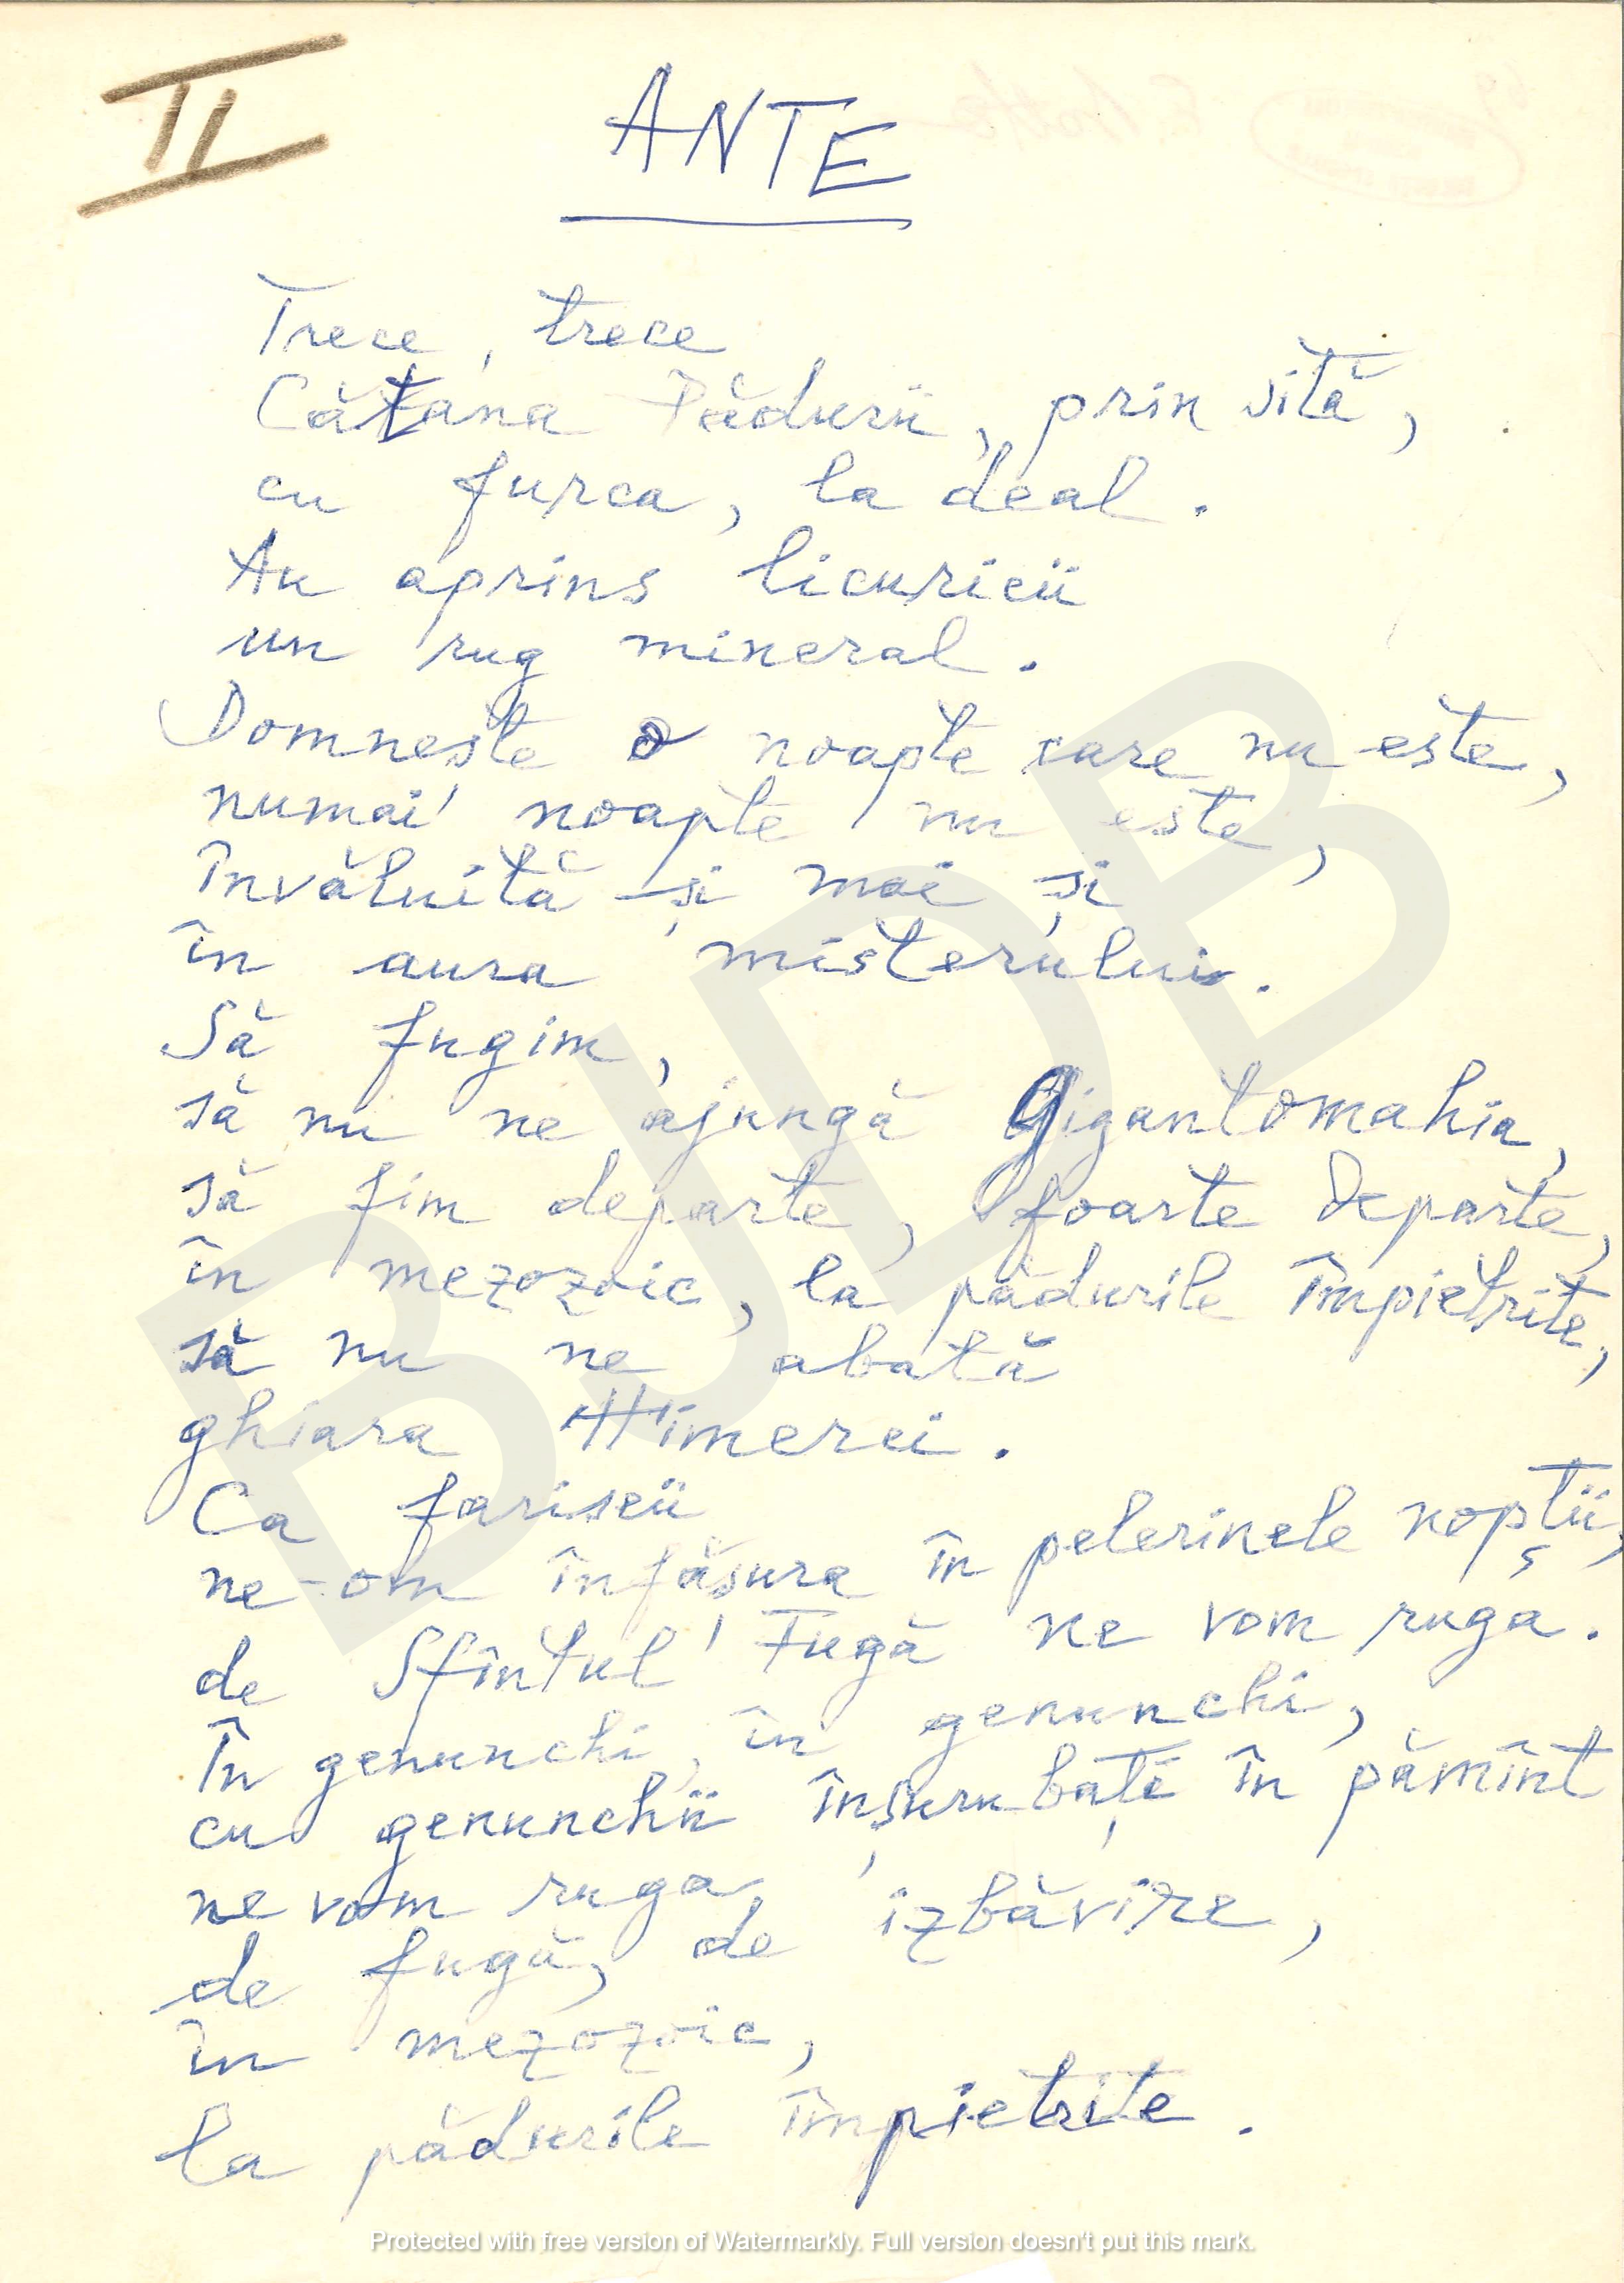 II
ANTE
Trece, trece
Cătana Pădurii, prin sită,
cu furca, la deal.
Au aprins licuricii
un rug mineral.
Domnește o noapte care nu este,
numai noapte nu este,
învăluită și mai și
în aura misterului.
Să fugim,
să nu ne ajungă Gigantomahia,
să fim departe, foarte departe,
în mezozoic, la pădurile împietrite,
să nu ne abată
ghiara Himerei.
Ca fariseii
ne-om înfășura în pelerinele nopții,
de Sfîntul Fugă ne vom ruga.
În genunchi, în genunchi,
cu genunchii înșurubați în pămînt
ne vom ruga
de fugă, de izbăvire,
în mezozoic,
la pădurile împietrite.
BJDB
Protected with free version of Watermarkly. Full version doesn't put this mark.